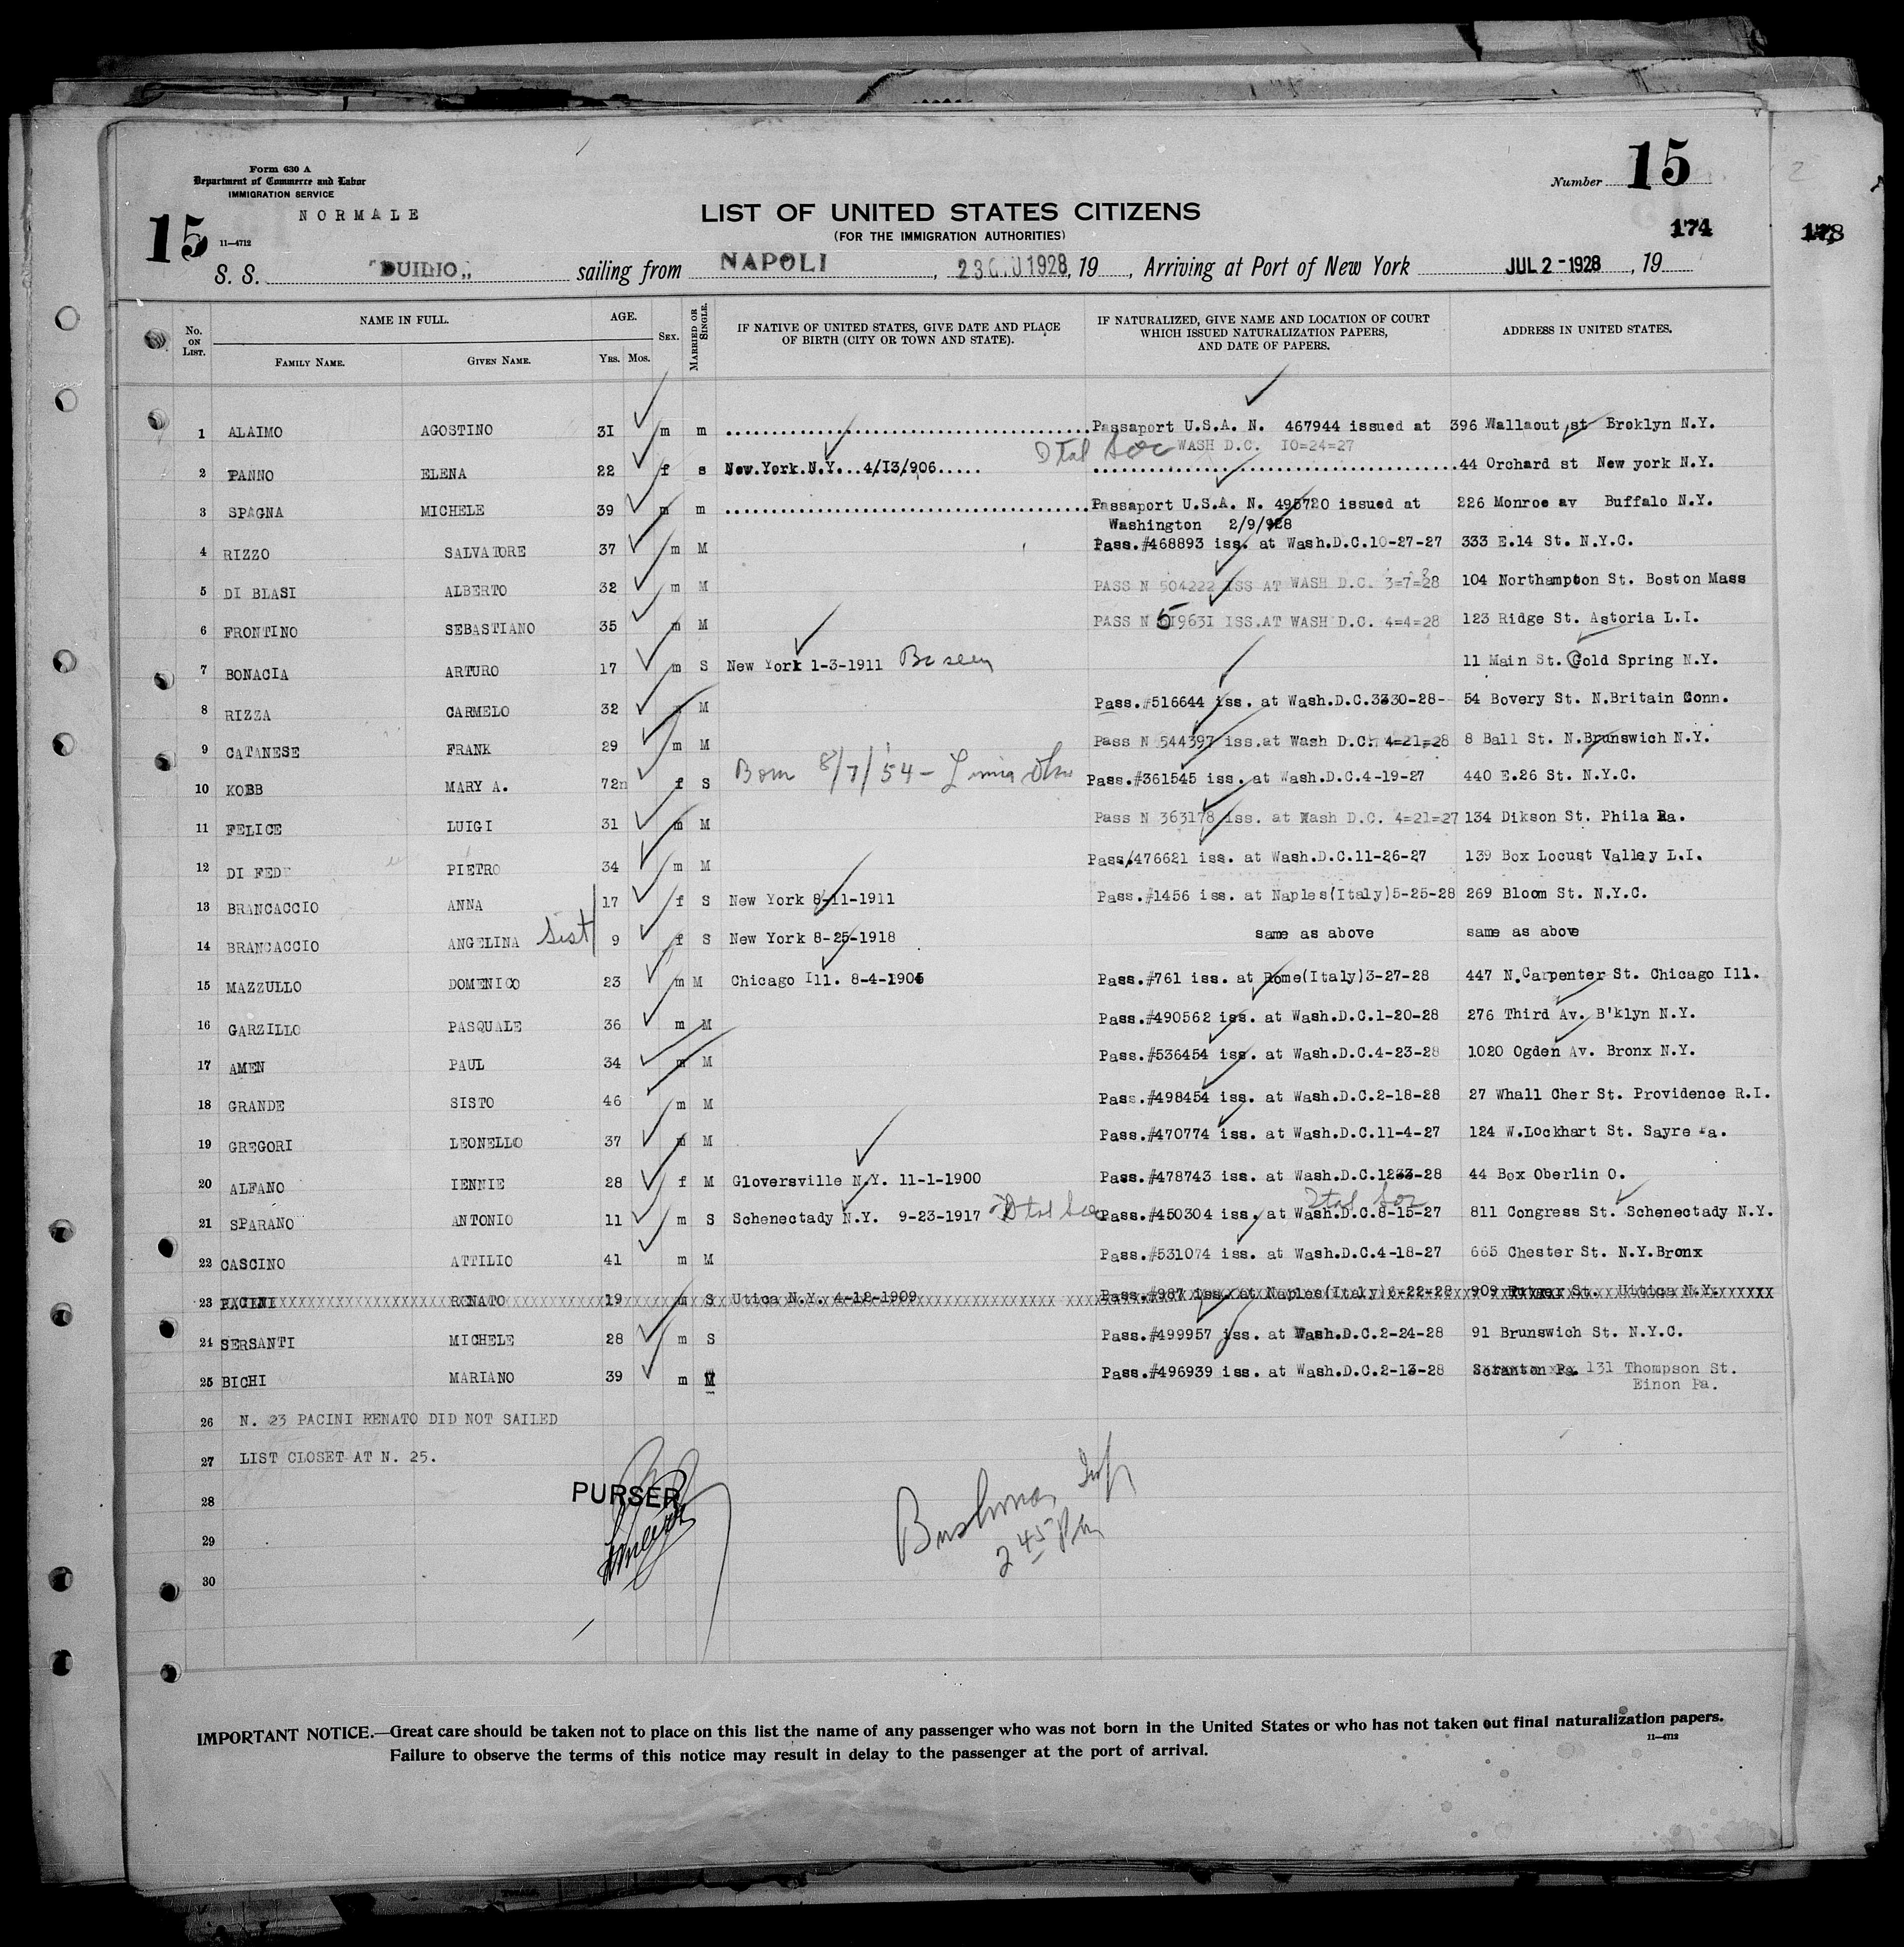 Form 630 A
Department of Commerce and Labor
IMMIGRATION SERVICE
NORMALE
15
11—4712
Number 15
LIST OF UNITED STATES CITIZENS
(FOR THE IMMIGRATION AUTHORITIES)
174
178
S. S. "DUILIO" sailing from NAPOLI, 23 GIU 1928, 19 , Arriving at Port of New York JUL 2 - 1928, 19
No. ON LIST. NAME IN FULL. AGE. SEX. MARRIED OR SINGLE. IF NATIVE OF UNITED STATES, GIVE DATE AND PLACE OF BIRTH (CITY OR TOWN AND STATE). IF NATURALIZED, GIVE NAME AND LOCATION OF COURT WHICH ISSUED NATURALIZATION PAPERS, AND DATE OF PAPERS. ADDRESS IN UNITED STATES.
FAMILY NAME. GIVEN NAME. YRS. MOS.
1 ALAIMO AGOSTINO 31 m m Passaport U.S.A. N. 467944 issued at 396 Wallaout st Broklyn N.Y.
WASH D.C. IO=24=27
2 PANNO ELENA 22 f s New.York.N.Y...4/I3/906..... 44 Orchard st New york N.Y.
3 SPAGNA MICHELE 39 m m Passaport U.S.A. N. 495720 issued at 226 Monroe av Buffalo N.Y.
Washington 2/9/928
4 RIZZO SALVATORE 37 m M Pass.#468893 iss. at Wash.D.C.10-27-27 333 E.14 St. N.Y.C.
5 DI BLASI ALBERTO 32 m M PASS N 504222 ISS AT WASH D.C. 3=7=28 104 Northampton St. Boston Mass
6 FRONTINO SEBASTIANO 35 m M PASS N 519631 ISS.AT WASH D.C. 4=4=28 123 Ridge St. Astoria L.I.
7 BONACIA ARTURO 17 m S New York 1-3-1911 11 Main St. Cold Spring N.Y.
8 RIZZA CARMELO 32 M Pass.#516644 iss. at Wash.D.C.3330-28- 54 Bovery St. N.Britain Conn.
9 CATANESE FRANK 29 m M Pass N 544397 iss.at Wash D.C. 4=21=28 8 Ball St. N.Brunswich N.Y.
10 KOBB MARY A. 72 f S Born 8/7/'54 - Lima Ohio Pass.#361545 iss. at Wash.D.C.4-19-27 440 E.26 St. N.Y.C.
11 FELICE LUIGI 31 m M Pass N 363178 iss. at Wash D.C. 4=21=27 134 Dikson St. Phila Pa.
12 DI FEDE PIETRO 34 m M Pass/476621 iss. at Wash.D.C.11-26-27 139 Box Locust Valley L.I.
13 BRANCACCIO ANNA 17 f S New York 8-11-1911 Pass.#1456 iss. at Naples(Italy)5-25-28 269 Bloom St. N.Y.C.
14 BRANCACCIO ANGELINA Sist 9 f S New York 8-25-1918 same as above same as above
15 MAZZULLO DOMENICO 23 m M Chicago Ill. 8-4-1905 Pass.#761 iss. at Rome(Italy)3-27-28 447 N.Carpenter St. Chicago Ill.
16 GARZILLO PASQUALE 36 m M Pass.#490562 iss. at Wash.D.C.1-20-28 276 Third Av. B'klyn N.Y.
17 AMEN PAUL 34 m M Pass.#536454 iss. at Wash.D.C.4-23-28 1020 Ogden Av. Bronx N.Y.
18 GRANDE SISTO 46 m M Pass.#498454 iss. at Wash.D.C.2-18-28 27 Whall Cher St. Providence R.I.
19 GREGORI LEONELLO 37 m M Pass.#470774 iss. at Wash.D.C.11-4-27 124 W.Lockhart St. Sayre Pa.
20 ALFANO IENNIE 28 f M Gloversville N.Y. 11-1-1900 Pass.#478743 iss. at Wash.D.C.1233-28 44 Box Oberlin O.
21 SPARANO ANTONIO 11 m S Schenectady N.Y. 9-23-1917 Pass.#450304 iss. at Wash.D.C.8-15-27 811 Congress St. Schenectady N.Y.
22 CASCINO ATTILIO 41 m M Pass.#531074 iss. at Wash.D.C.4-18-27 665 Chester St. N.Y.Bronx
23 PACINI RENATO 19 m S Utica N.Y. 4-12-1909 Pass.#987 iss. at Naples(Italy)6-22-28 909 St. Uitica N.Y.
24 SERSANTI MICHELE 28 m S Pass.#499957 iss. at Wash.D.C.2-24-28 91 Brunswich St. N.Y.C.
25 BICHI MARIANO 39 m M Pass.#496939 iss. at Wash.D.C.2-13-28 Scranton Pa. 131 Thompson St.
Einon Pa.
26 N. 23 PACINI RENATO DID NOT SAILED
27 LIST CLOSET AT N. 25.
28
PURSER
29
30
2 45 PM
IMPORTANT NOTICE.—Great care should be taken not to place on this list the name of any passenger who was not born in the United States or who has not taken out final naturalization papers.
Failure to observe the terms of this notice may result in delay to the passenger at the port of arrival.
11—4712